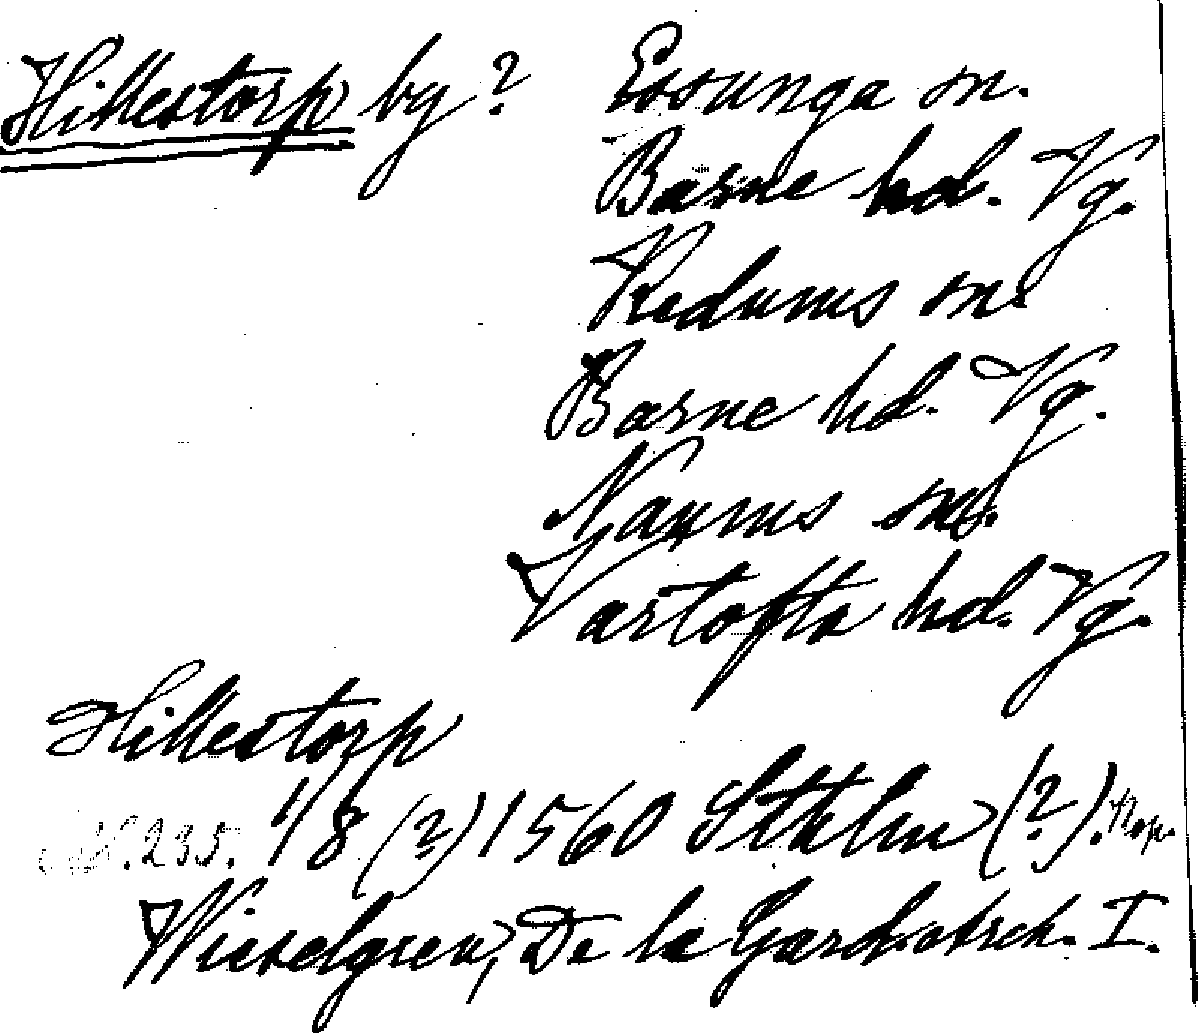 Hillestorp by? Essunga sn.
Barne hd. Vg.
Kedums sn.
Barne hd. Vg.
Naums sn.
Vartofta hd. Vg.
Hillestorp
s. 235. 1/8 (?) 1560 Sthlm (?). Kop.
Wieselgren, De la Gardiarch. I.